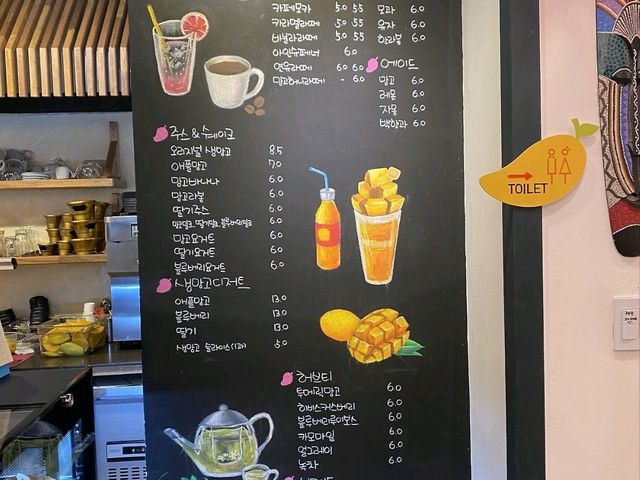 카페모카 5.0 5.5
카라멜라떼 5.0 5.5
바닐라라떼 5.0 5.5
아인슈페너 6.0
연유라떼 6.0 6.0
망고허니라떼 - 6.0
모과 6.0
유자 6.0
한라봉 6.0
에이드
망고 6.0
레몬 6.0
자몽 6.0
백향과 6.0
주스&쉐이크
오리지널 생망고 8.5
애플망고 7.0
망고바나나 6.0
망고라봉 6.0
딸기주스 6.0
망고밀크, 딸기밀크, 블루베리밀크 6.0
망고요거트 6.0
딸기요거트 6.0
블루베리요거트 6.0
생망고디저트
애플망고 13.0
블루베리 13.0
딸기 13.0
생망고 슬라이스(1과) 5.0
허브티
투메릭망고 6.0
히비스커스베리 6.0
블루베리루이보스 6.0
카모마일 6.0
얼그레이 6.0
녹차 6.0
TOILET